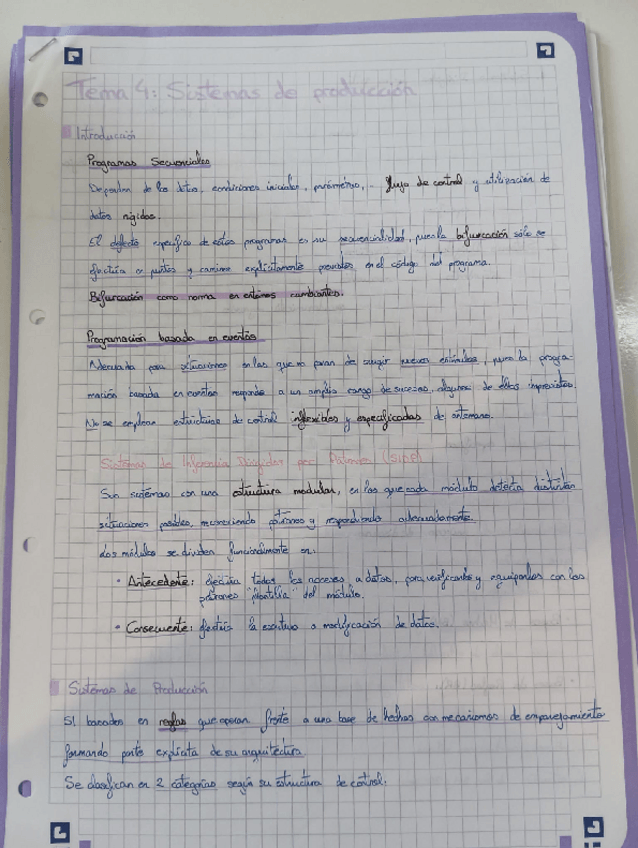 Tema 4: Sistemas de producción
Introducción
Programas Secuenciales
Dependen de los datos, condiciones iniciales, parámetros, .. flujo de control y utilización de
datos rígidos.
El defecto específico de estos programas es su secuencialidad, pues la bifurcación sólo se
efectúa en puntos y caminos explícitamente previstos en el código del programa.
Bifurcación como norma en entornos cambiantes.
Programación basada en eventos
Adecuada para situaciones en las que no paran de surgir nuevos estímulos, pues la progra-
mación basada en eventos responde a un amplio rango de sucesos, algunos de ellos imprevistos.
No se emplean estructuras de control inflexibles y especificadas de antemano.
Sistemas de Inferencia Dirigidos por Patrones (SIDP)
Son sistemas con una estructura modular, en los que cada módulo detecta distintas
situaciones posibles, reconociendo patrones y respondiendo adecuadamente.
Los módulos se dividen funcionalmente en:
• Antecedente: efectúa todos los accesos a datos, para verificarlos y equipararlos con los
patrones "plantilla" del módulo.
• Consecuente: efectúa la escritura o modificación de datos.
Sistemas de Producción
SI basados en reglas que operan frente a una base de hechos con mecanismos de emparejamiento
formando parte explícita de su arquitectura
Se clasifican en 2 categorías según su estructura de control: